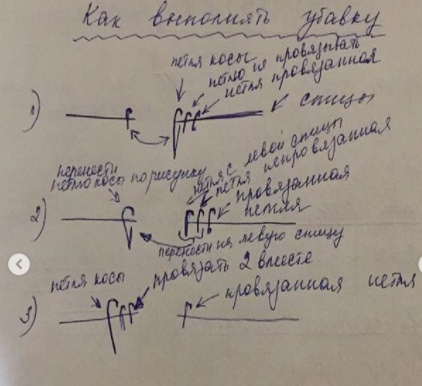 Как выполнять убавку
петля косы
петлю не провязывать
петля провязанная
1)
спицы
перенести
петлю косы по рисунку
петля с левой спицы
петля непровязанная
провязанная
петля
2)
перенести на левую спицу
петля косы
провязать 2 вместе
провязанная петля
3)